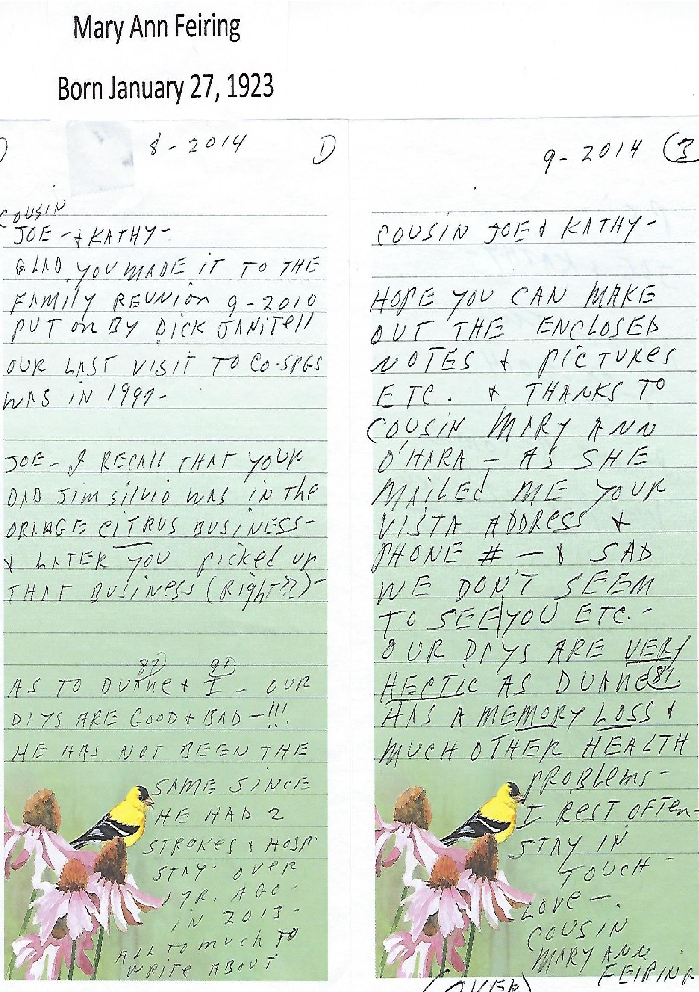 Mary Ann Feiring
Born January 27, 1923
8 - 2014 1)
COUSIN
JOE - & KATHY -
GLAD YOU MADE IT TO THE
FAMILY REUNION 9-2010
PUT ON BY DICK JANITELL
OUR LAST VISIT TO CO-SPGS
WAS IN 1999-
JOE - I RECALL THAT YOUR
DAD JIM SILVIO WAS IN THE
ORANGE CITRUS BUSINESS -
& LATER YOU PICKED UP
THAT BUSINESS (RIGHT??) -
AS TO DUANE & I - OUR
DAYS ARE GOOD & BAD - !!!
HE HAS NOT BEEN THE
SAME SINCE
HE HAD 2
STROKES & HOSP.
STAY - OVER
1 YR. AGO -
IN 2013 -
ALL TO MUCH TO
WRITE ABOUT
9 - 2014 (3
COUSIN JOE & KATHY -
HOPE YOU CAN MAKE
OUT THE ENCLOSED
NOTES & PICTURES
ETC. & THANKS TO
COUSIN MARY ANN
O'HARA - AS SHE
MAILED ME YOUR
VISTA ADDRESS &
PHONE # - & SAD
WE DON'T SEEM
TO SEE YOU ETC. -
OUR DAYS ARE VERY
HECTIC AS DUANE
HAS A MEMORY LOSS &
MUCH OTHER HEALTH
PROBLEMS -
I REST OFTEN -
STAY IN
TOUCH -
LOVE -
COUSIN
MARY ANN
FEIRING
(OVER)